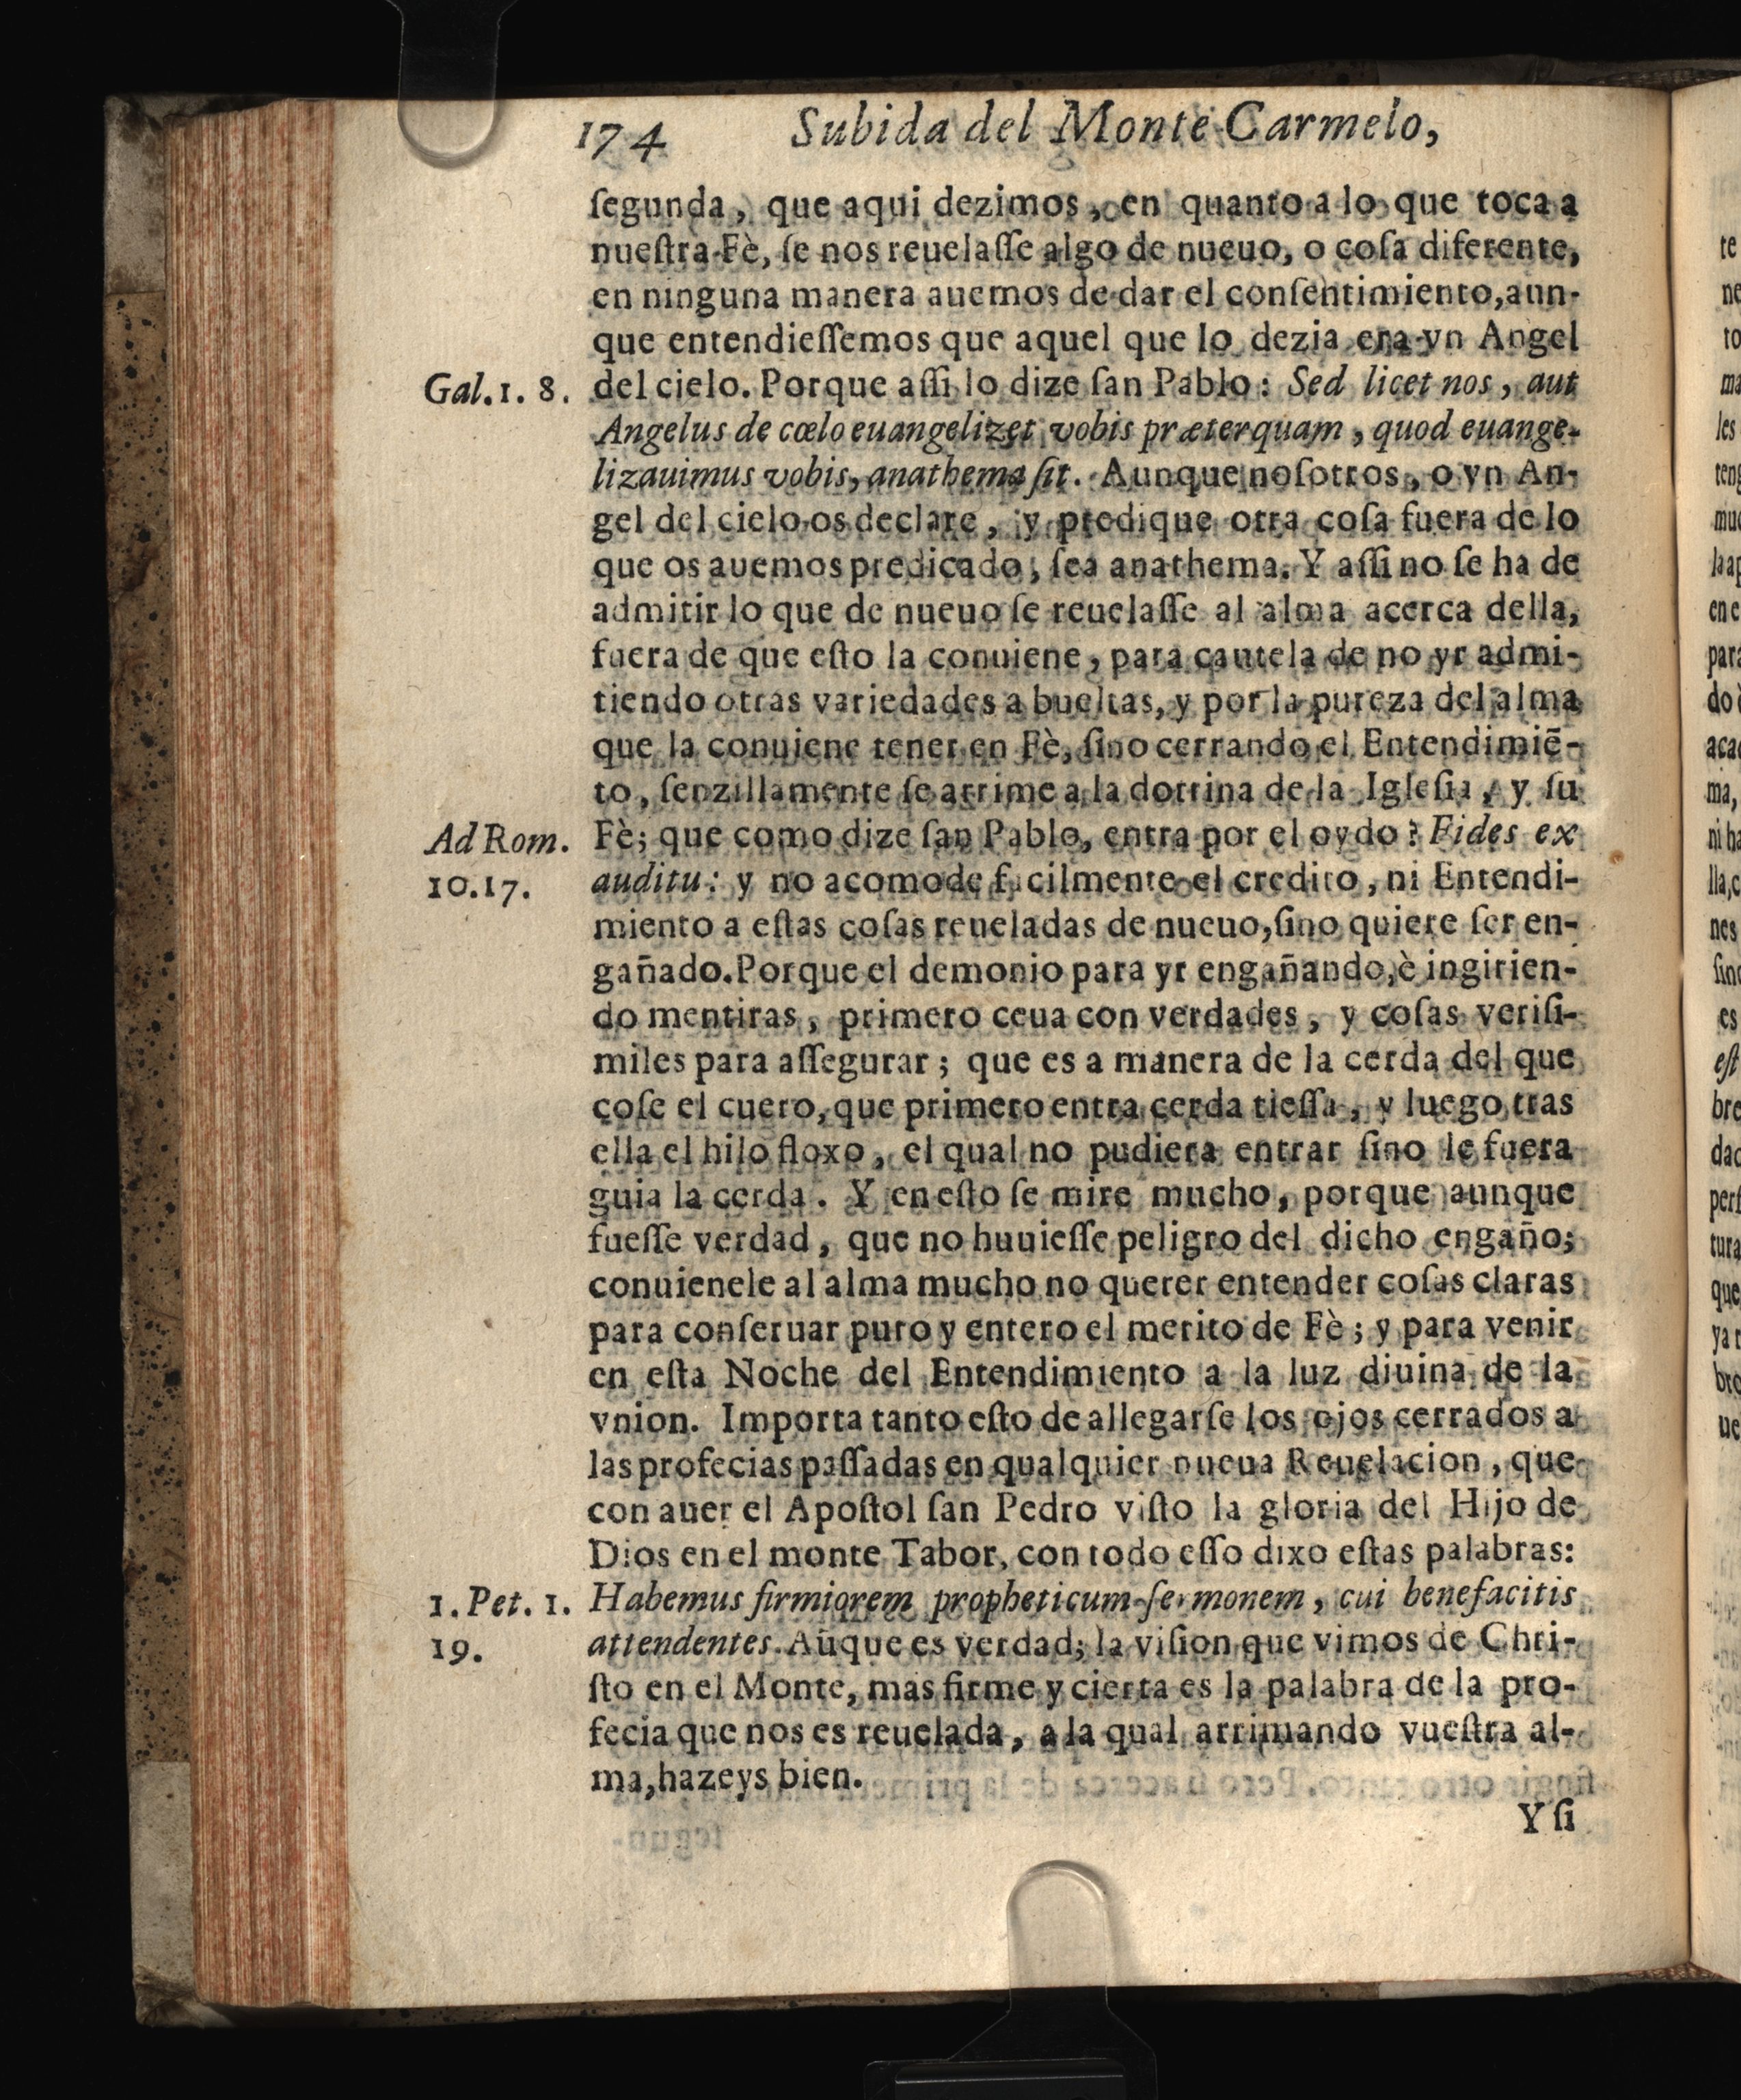 174 Subida del Monte Carmelo,
ſegunda, que aqui dezimos, en quanto a lo que toca a
nueſtra Fè, ſe nos reuelaſſe algo de nueuo, o coſa diferente,
en ninguna manera auemos de dar el conſentimiento, aun-
que entendieſſemos que aquel que lo dezia era vn Angel
Gal. 1. 8. del cielo. Porque aſſi lo dize ſan Pablo: Sed licet nos, aut
Angelus de cœlo euangelizet vobis præterquam, quod euange-
lizauimus vobis, anathema ſit. Aunque noſotros, o vn An-
gel del cielo os declare, y predique otra coſa fuera de lo
que os auemos predicado, ſea anathema. Y aſſi no ſe ha de
admitir lo que de nueuo ſe reuelaſſe al alma acerca della,
fuera de que eſto la conuiene, para cautela de no yr admi-
tiendo otras variedades a bueltas, y por la pureza del alma
que la conuiene tener en Fè, ſino cerrando el Entendimiẽ-
to, ſenzillamente ſe arrime a la dotrina de la Igleſia, y ſu
Ad Rom. Fè; que como dize ſan Pablo, entra por el oydo? Fides ex
10.17. auditu: y no acomode facilmente el credito, ni Entendi-
miento a eſtas coſas reueladas de nueuo, ſino quiere ſer en-
gañado. Porque el demonio para yr engañando, è ingirien-
do mentiras, primero ceua con verdades, y coſas veriſi-
miles para aſſegurar; que es a manera de la cerda del que
coſe el cuero, que primero entra cerda tieſſa, y luego tras
ella el hilo floxo, el qual no pudiera entrar ſino le fuera
guia la cerda. Y en eſto ſe mire mucho, porque aunque
fueſſe verdad, que no huuieſſe peligro del dicho engaño;
conuienele al alma mucho no querer entender coſas claras
para conſeruar puro y entero el merito de Fè; y para venir
en eſta Noche del Entendimiento a la luz diuina de la
vnion. Importa tanto eſto de allegarſe los ojos cerrados a
las profecias paſſadas en qualquier nueua Reuelacion, que
con auer el Apoſtol ſan Pedro viſto la gloria del Hijo de
Dios en el monte Tabor, con todo eſſo dixo eſtas palabras:
1. Pet. 1. Habemus firmiorem propheticum ſermonem, cui benefacitis
19. attendentes. Aũque es verdad; la viſion que vimos de Chri-
ſto en el Monte, mas firme y cierta es la palabra de la pro-
fecia que nos es reuelada, a la qual arrimando vueſtra al-
ma, hazeys bien.
Y ſi